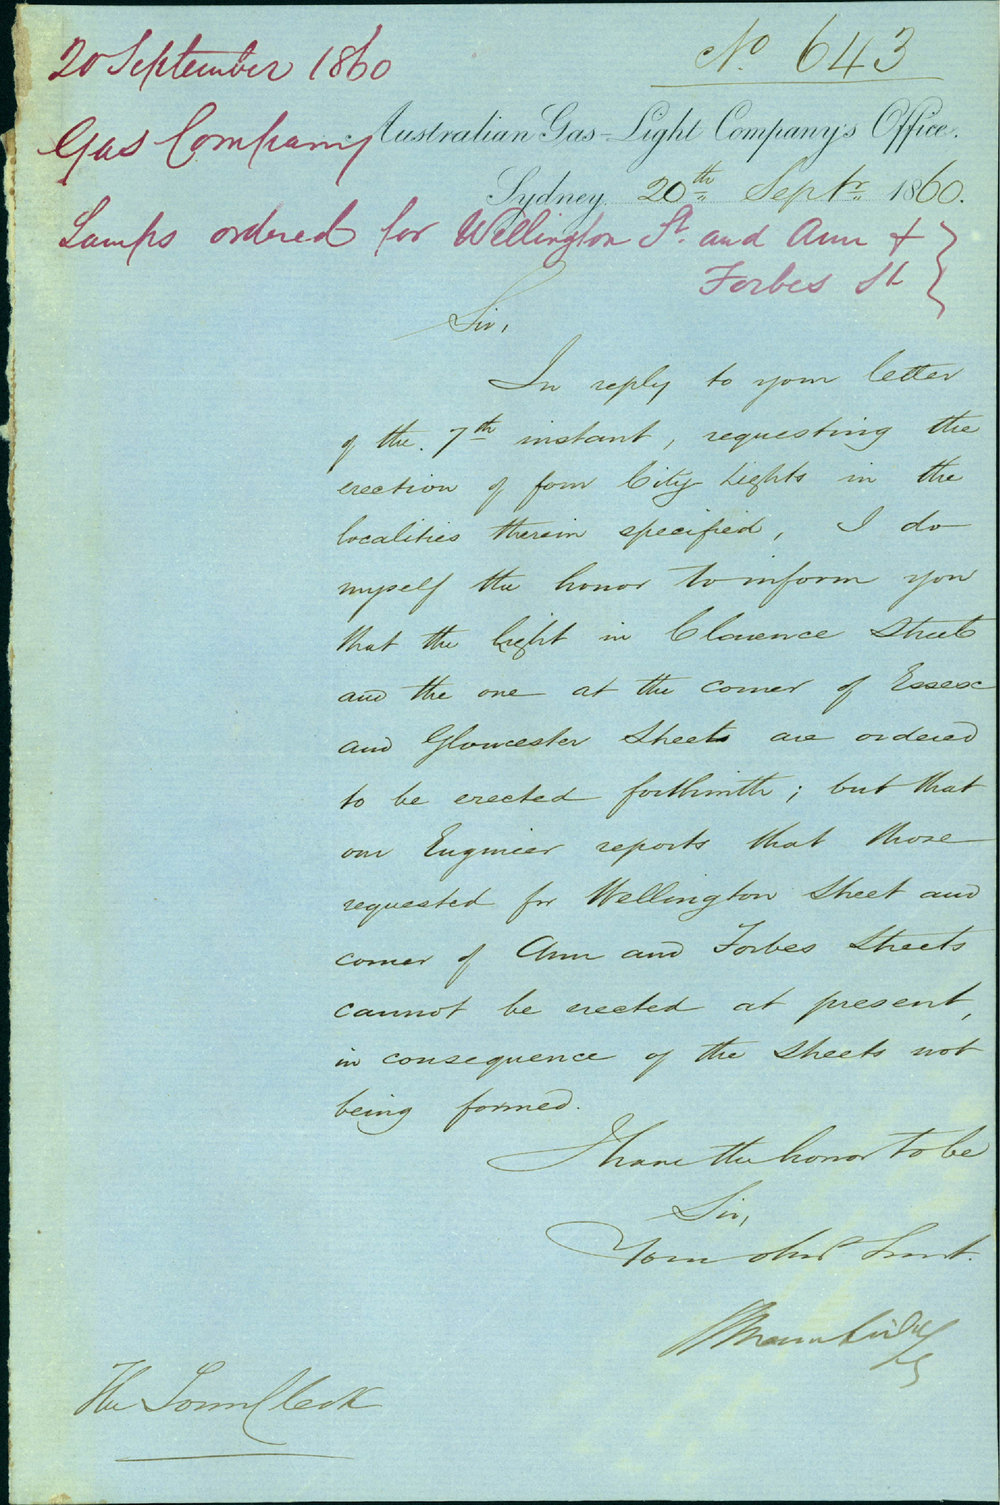 20 September 1860
No. 643
Gas Company
Australian Gas-Light Company's Office.
Sydney, 20th Septr. 1860.
Lamps ordered for Wellington St. and Ann +
Forbes St
Sir,
In reply to your letter
of the 7th instant, requesting the
erection of four City Lights in the
localities therein specified, I do
myself the honor to inform you
that the Light in Clarence Street
and the one at the corner of Essex
and Gloucester Streets are ordered
to be erected forthwith; but that
our Engineer reports that those
requested for Wellington Street and
corner of Ann and Forbes Streets
cannot be erected at present,
in consequence of the Streets not
being formed.
I have the honor to be
Sir,
Your obdt Servt.
The Town Clerk